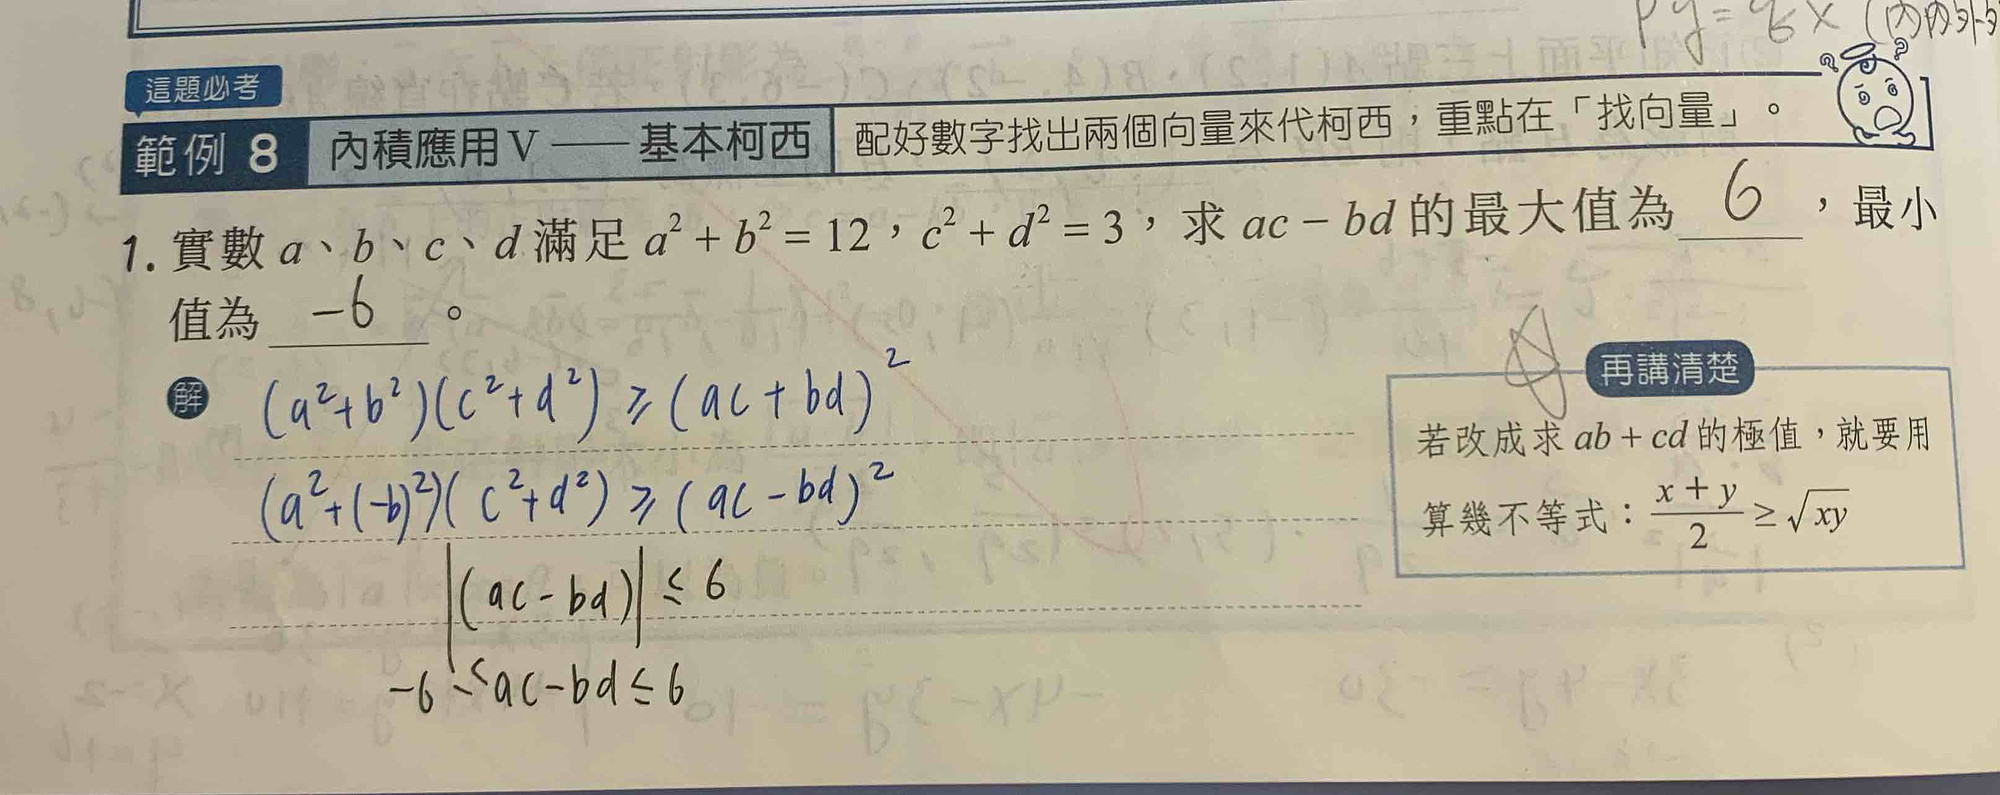 py = qx (內內外外
這題必考
範例 8 內積應用 V —— 基本柯西 配好數字找出兩個向量來代柯西，重點在「找向量」。
1. 實數 a、b、c、d 滿足 a² + b² = 12，c² + d² = 3，求 ac − bd 的最大值為 6 ，最小
值為 −6 。
解 (a²+b²)(c²+d²) ≥ (ac+bd)²
(a²+(-b)²)(c²+d²) ≥ (ac-bd)²
|(ac-bd)| ≤ 6
-6 ≤ ac-bd ≤ 6
再講清楚
若改成求 ab + cd 的極值，就要用
算幾不等式：(x + y)/2 ≥ √xy